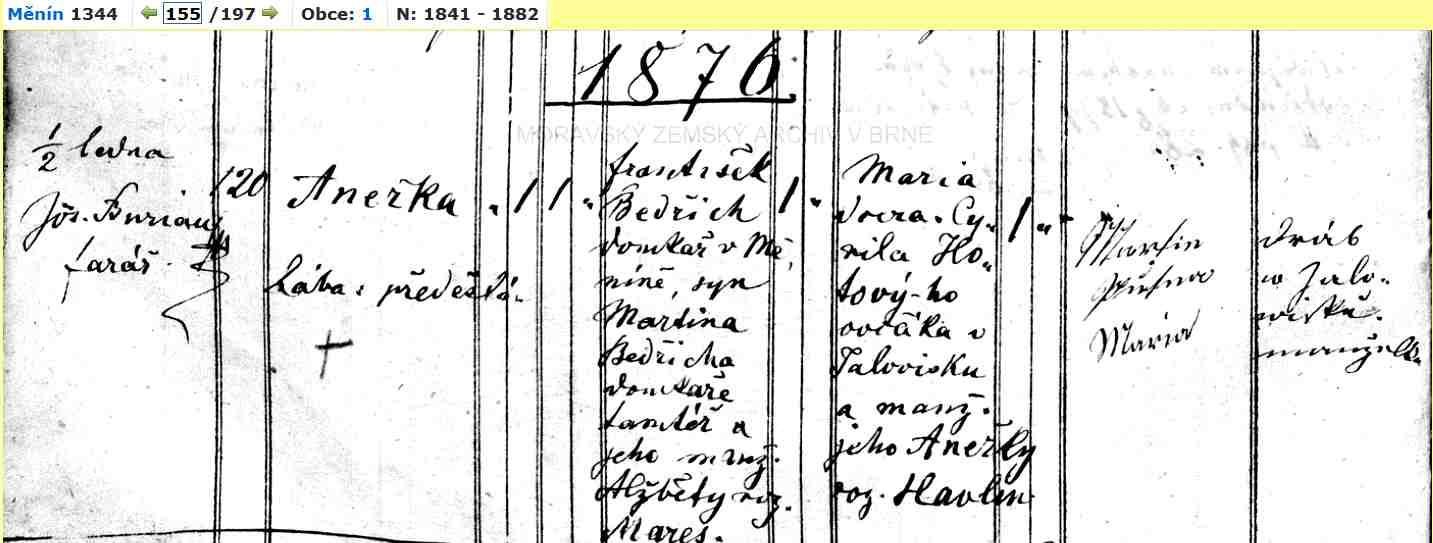 Měnín 1344 155 /197 Obce: 1 N: 1841 - 1882
1876.
MORAVSKÝ ZEMSKÝ ARCHIV V BRNĚ
1/2 ledna
Jos. Burian
farář.
120
Anežka
Bába:
+
„ 1 1 „
František
Bedřich
domkař v Mě,
níně, syn
Martina
Bedřicha
domkaře
tamtéž a
jeho manž.
Alžběty roz.
Mareš.
1 „
Maria
dcera Cy„
rila Ho„
tový-ho
ovčáka v
Jalovisku
a manž.
jeho Anežky
roz. Havlin
1 „
Martin
Maria
dráb
w Jalo„
wisku.
manželk.